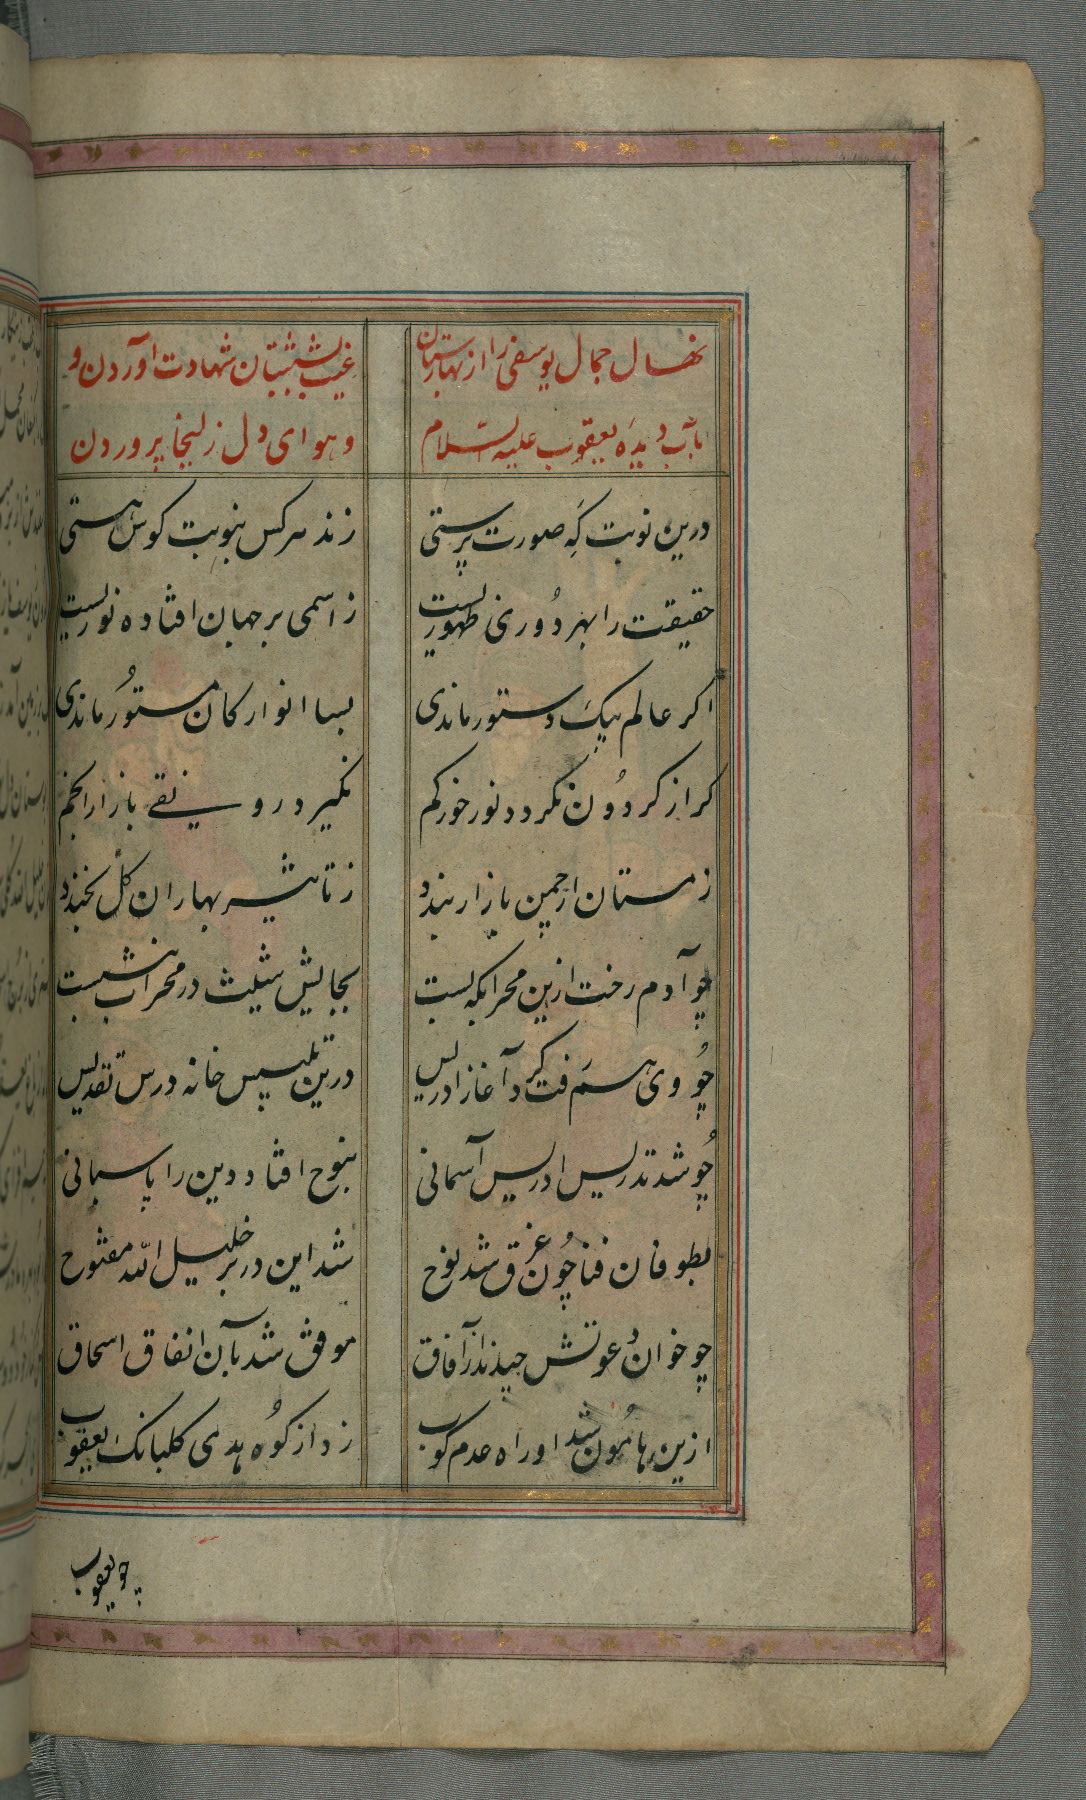 نهال جمال یوسفی را از بهارستان غیب بشبستان شهادت آوردن و
بآب دیده یعقوب علیه السلام و هوای دل زلیخا پروردن
درین نوبت که صورت پرستی زند هرکس بنوبت کوس هستی
حقیقت را بهر دوری ظهوریست ز اسمی بر جهان افتاده نوریست
اکر عالم بیک دستور ماندی بسا انوار کان مستور ماندی
کر از کردون نکردد نور خور کم نکیرد رونقی بازار انجم
زمستان از چمن بار ار نبندد ز تاثیر بهاران کل نخندد
چو آدم رخت ازین محرابکه بست بجایش شیث در محراب بنشست
چو وی هم رفت کرد آغاز ادریس درین تلبیس خانه درس تقدیس
چو شد تدریس ادریس آسمانی بنوح افتاد دین را پاسبانی
بطوفان فنا چون غرق شد نوح شد این در بر خلیل الله مفتوح
چو خوان دعوتش چیدند از آفاق موفق شد بآن انفاق اسحاق
ازین هامون شد او راه عدم کوب زد از کوه هدی کلبانک یعقوب
چو یعقوب